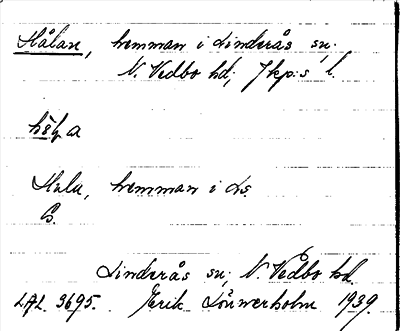 Hålan, hemman i Linderås sn;
N. Vedbo hd; Jkp:s l.
Hula, hemman i ds.
Linderås sn; N. Vedbo hd.
LAL 3695. Erik Lönnerholm 1939.